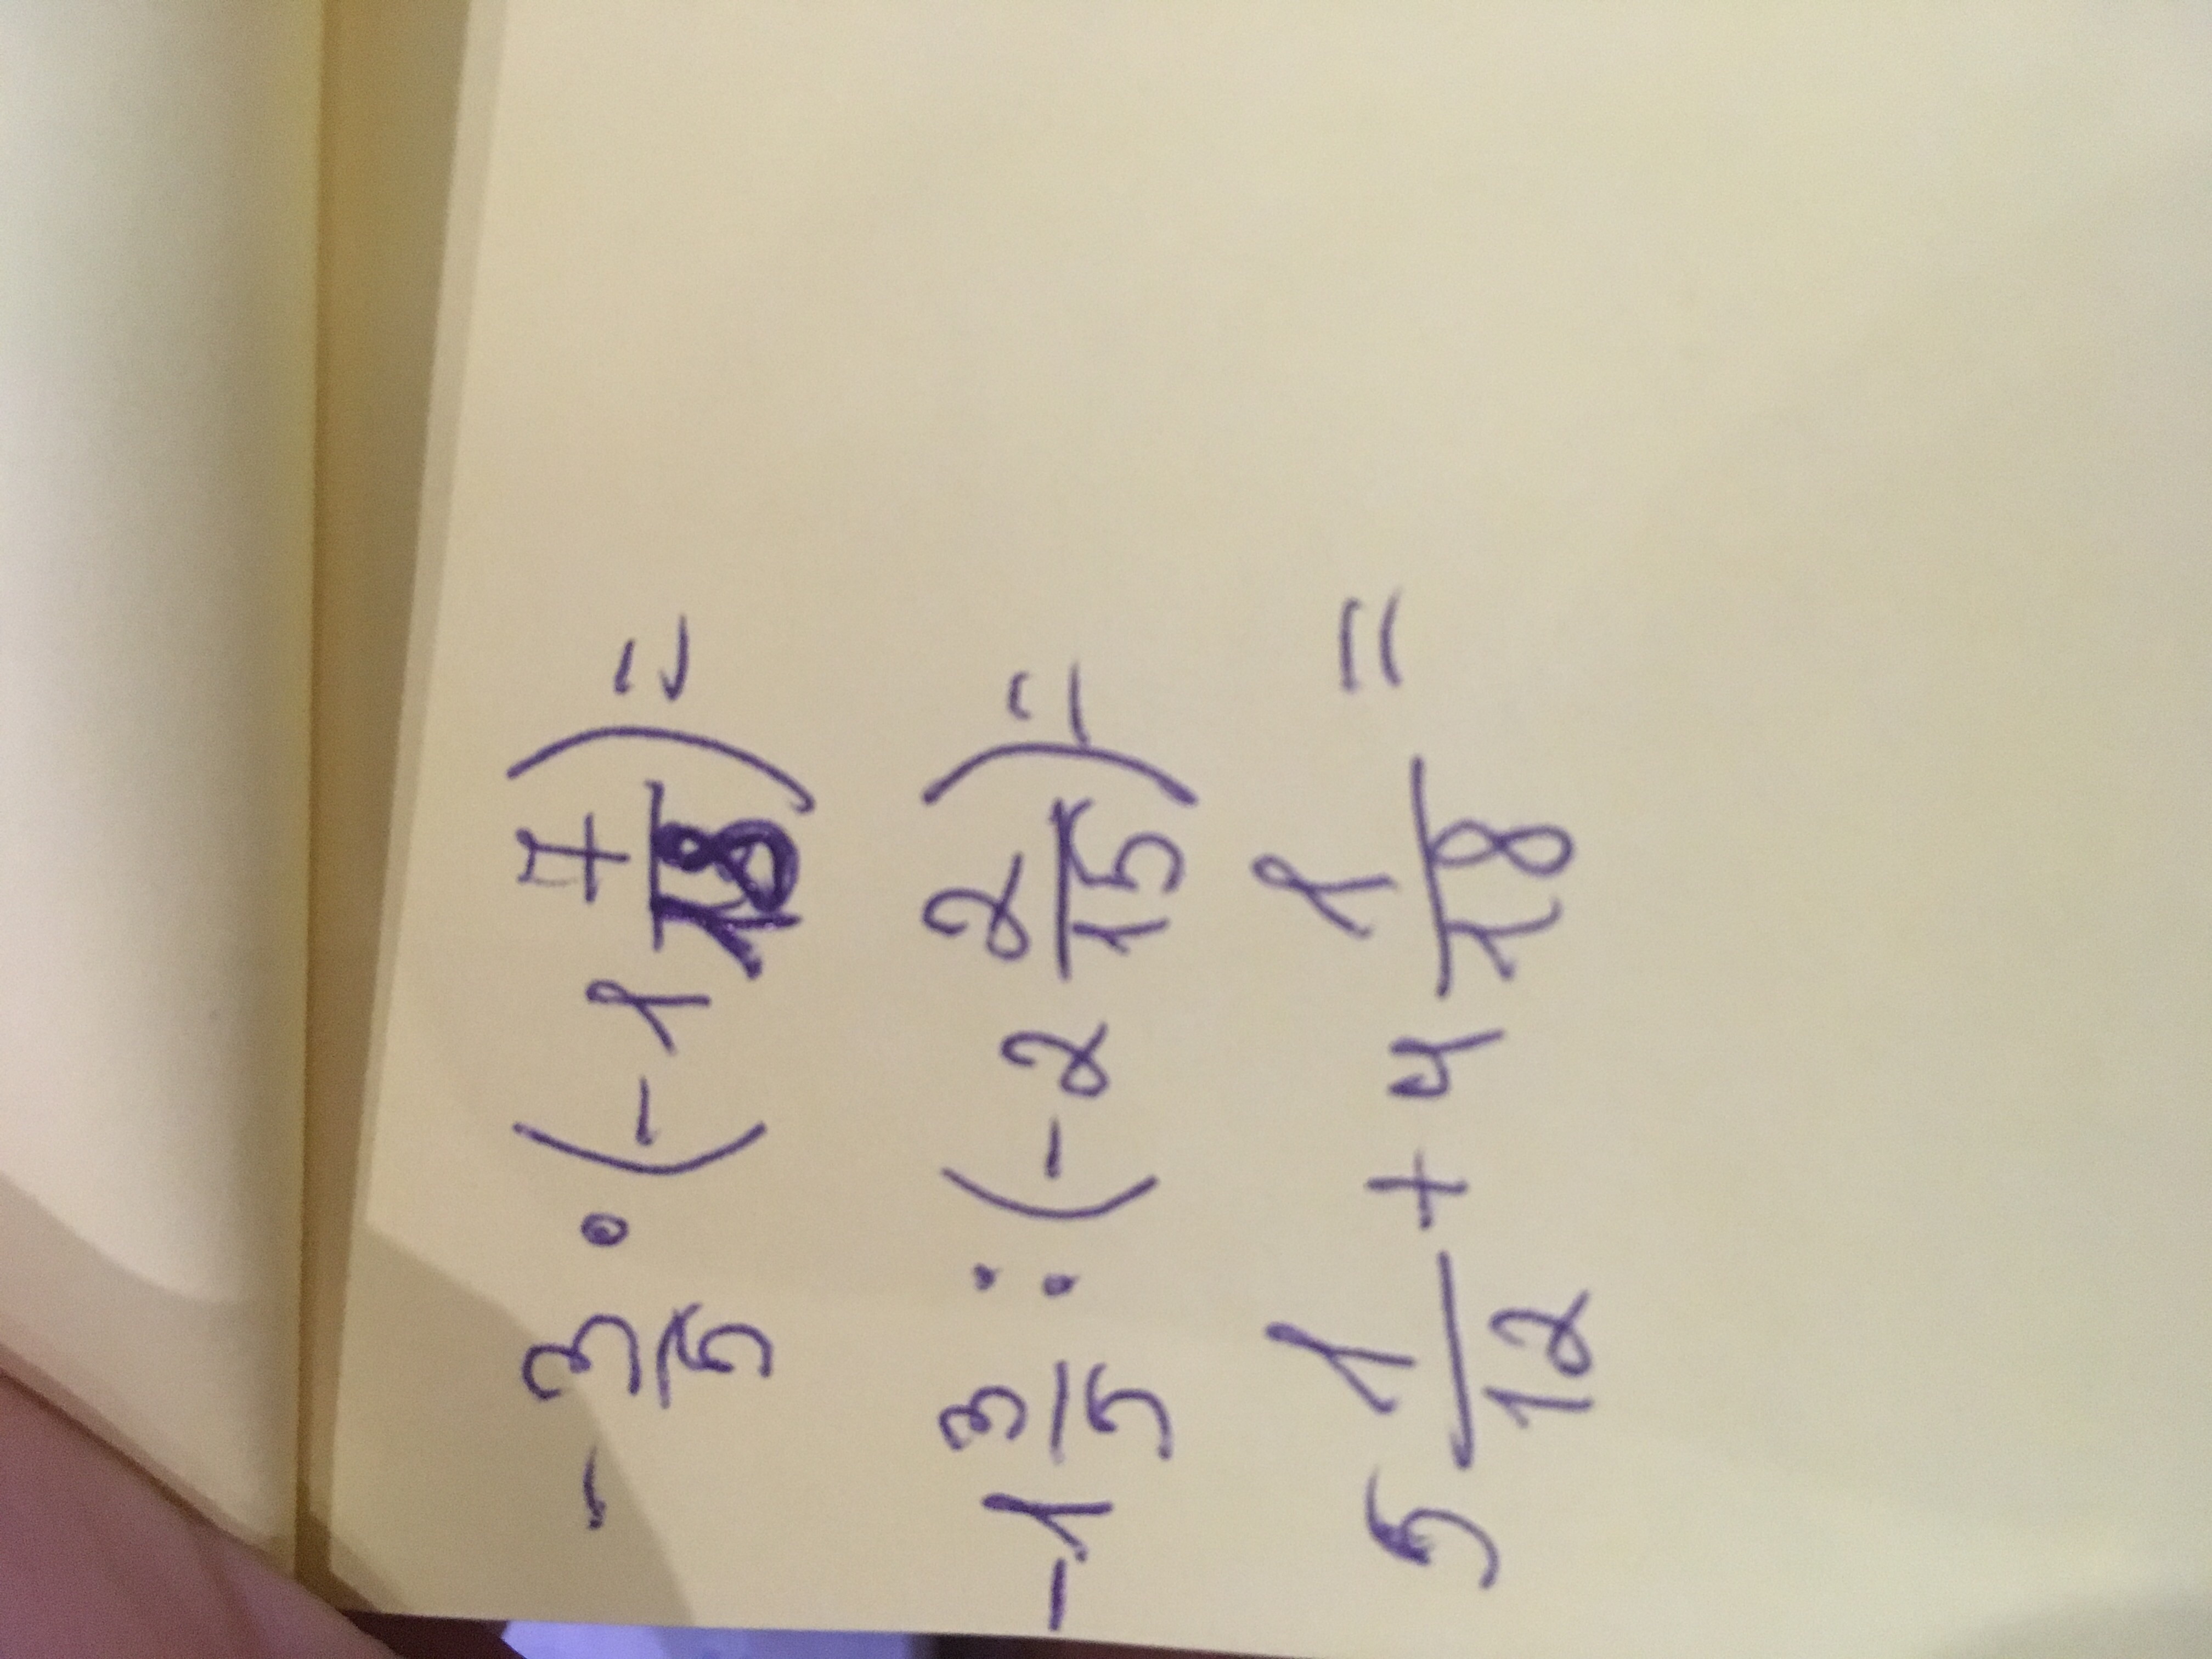 - 3/5 · (- 1 7/18) =
- 1 3/5 : (- 2 2/15) =
5 1/12 + 4 1/18 =